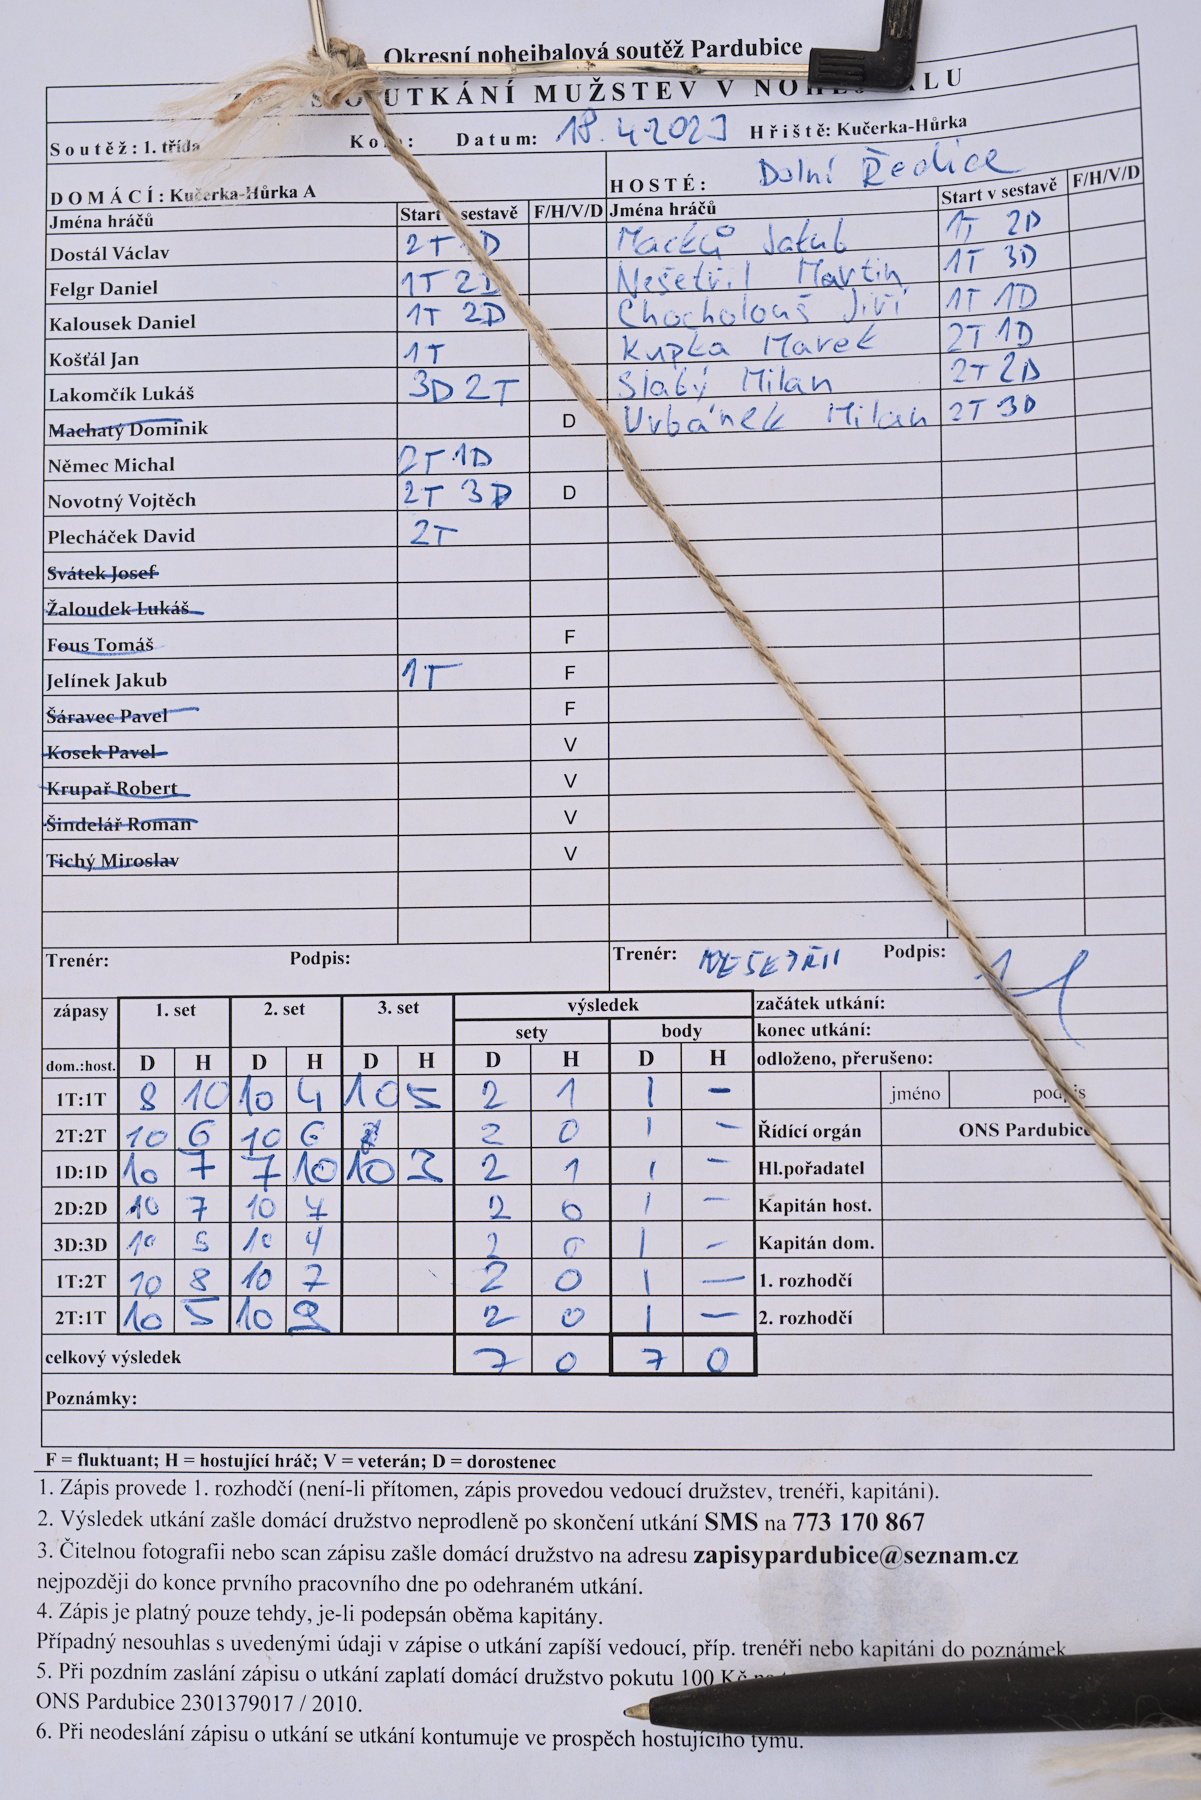 Okresní nohejbalová soutěž Pardubice
UTKÁNÍ MUŽSTEV V
Soutěž: 1. třída Datum: 18. 4. 2023 Hřiště: Kučerka-Hůrka
DOMÁCÍ: Kučerka-Hůrka A HOSTÉ: Dolní Ředice
Jména hráčů Start v sestavě F/H/V/D Jména hráčů Start v sestavě F/H/V/D
Dostál Václav 2T 1D Macků Jakub 1T 2D
Felgr Daniel 1T 2D Nešetřil Martin 1T 3D
Kalousek Daniel 1T 2D Chocholouš Jiří 1T 1D
Košťál Jan 1T Kupka Marek 2T 1D
Lakomčík Lukáš 3D 2T Slabý Milan 2T 2D
Machatý Dominik D Urbánek Milan 2T 3D
Němec Michal 2T 1D
Novotný Vojtěch 2T 3D D
Plecháček David 2T
Svátek Josef
Žaloudek Lukáš
Fous Tomáš F
Jelínek Jakub 1T F
Šáravec Pavel F
Kosek Pavel V
Krupař Robert V
Šindelář Roman V
Tichý Miroslav V
Trenér: Podpis: Trenér: NEŠETŘIL Podpis:
zápasy 1. set 2. set 3. set výsledek začátek utkání:
sety body konec utkání:
dom.:host. D H D H D H D H D H odloženo, přerušeno:
1T:1T 8 10 10 4 10 5 2 1 1 - jméno podpis
2T:2T 10 6 10 6 2 0 1 - Řídící orgán ONS Pardubice
1D:1D 10 7 7 10 10 3 2 1 1 - Hl.pořadatel
2D:2D 10 7 10 7 2 0 1 - Kapitán host.
3D:3D 10 5 10 4 2 0 1 - Kapitán dom.
1T:2T 10 8 10 7 2 0 1 - 1. rozhodčí
2T:1T 10 5 10 9 2 0 1 - 2. rozhodčí
celkový výsledek 7 0 7 0
Poznámky:
F = fluktuant; H = hostující hráč; V = veterán; D = dorostenec
1. Zápis provede 1. rozhodčí (není-li přítomen, zápis provedou vedoucí družstev, trenéři, kapitáni).
2. Výsledek utkání zašle domácí družstvo neprodleně po skončení utkání SMS na 773 170 867
3. Čitelnou fotografii nebo scan zápisu zašle domácí družstvo na adresu zapisypardubice@seznam.cz
nejpozději do konce prvního pracovního dne po odehraném utkání.
4. Zápis je platný pouze tehdy, je-li podepsán oběma kapitány.
Případný nesouhlas s uvedenými údaji v zápise o utkání zapíší vedoucí, příp. trenéři nebo kapitáni do poznámek
5. Při pozdním zaslání zápisu o utkání zaplatí domácí družstvo pokutu 100 Kč
ONS Pardubice 2301379017 / 2010.
6. Při neodeslání zápisu o utkání se utkání kontumuje ve prospěch hostujícího týmu.